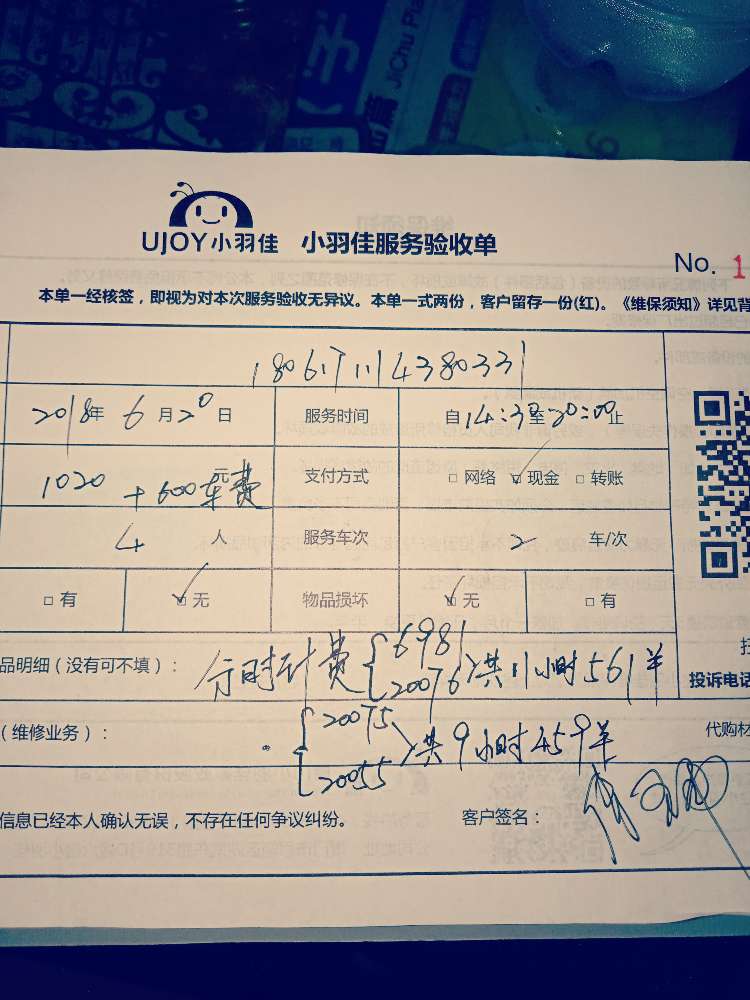 篇 JiChu Pia
UJOY 小羽佳 小羽佳服务验收单
No. 1
本单一经核签，即视为对本次服务验收无异议。本单一式两份，客户留存一份(红)。《维保须知》详见背
2018年 6月20日 服务时间 自14:3至20:00止
1020元+600车费 支付方式 □网络 ☑现金 □转账
4人 服务车次 2 车/次
□有 ☑无 物品损坏 ☑无 □有
品明细（没有可不填）： 分时计费 6981 20076 共11小时561羊
投诉电话
（维修业务）： 20075 20055 共9小时459羊 代购材
信息已经本人确认无误，不存在任何争议纠纷。 客户签名：